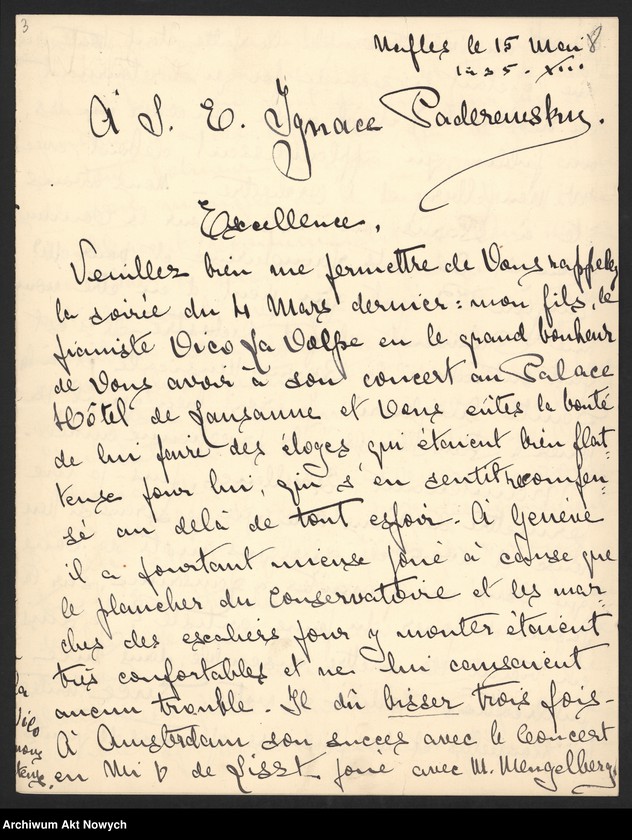 3
Naples le 15 Mars 8
1935 - XIII
À S. E. Ignace Paderewsky.
Excellence,
Veuillez bien me permettre de Vous rappeler
la soirée du 4 Mars dernier: mon fils, le
pianiste Vico La Volpe eu le grand bonheur
de Vous avoir à son concert au Palace
Hôtel de Lausanne et Vous eûtes la bonté
de lui faire des éloges qui étaient bien flat-
teuse pour lui, qui s'en sentit recompen-
sé au delà de tout espoir. À Genéve
il a pourtant mieux joué à cause que
le plancher du Conservatoire et les mar-
ches des escaliers pour y monter étaient
très confortables et ne lui causaient
aucun trouble. Il dû bisser trois fois -
À Amsterdam son succes avec le Concert
en Mi b de Liszt joué avec M. Mengelberg,
la
Vico
nous
Archiwum Akt Nowych